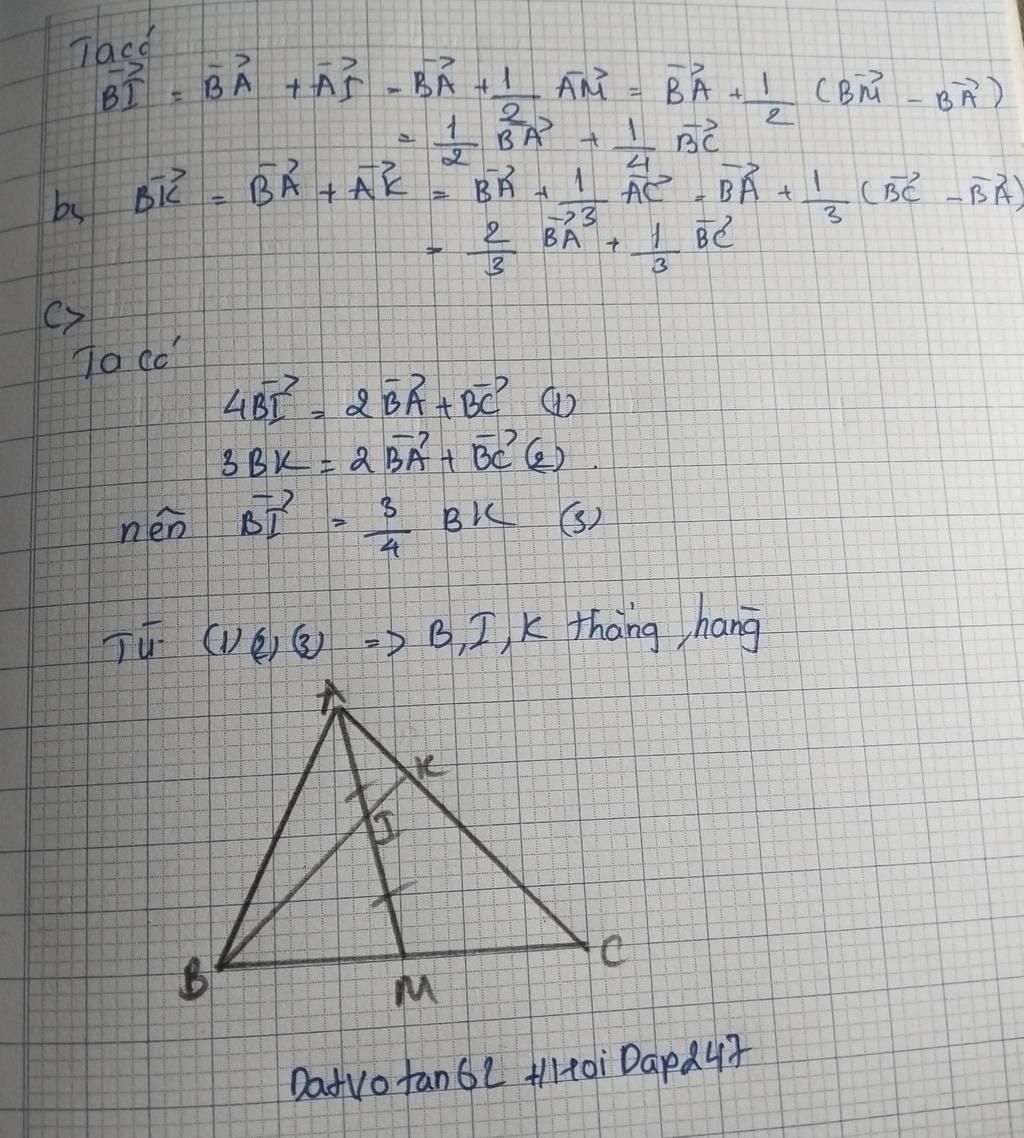 Ta có
BI⃗ = BA⃗ + AI⃗ = BA⃗ + 1/2 AM⃗ = BA⃗ + 1/2 (BM⃗ - BA⃗)
= 1/2 BA⃗ + 1/4 BC⃗
b, BK⃗ = BA⃗ + AK⃗ = BA⃗ + 1/3 AC⃗ = BA⃗ + 1/3 (BC⃗ - BA⃗)
= 2/3 BA⃗ + 1/3 BC⃗
C>
Ta có
4BI⃗ = 2BA⃗ + BC⃗ (1)
3BK = 2BA⃗ + BC⃗ (2)
nên BI⃗ = 3/4 BK (3)
Từ (1) (2) (3) => B, I, K thẳng hàng
A
K
I
B
C
M
Datvotan62 #HoiDap247